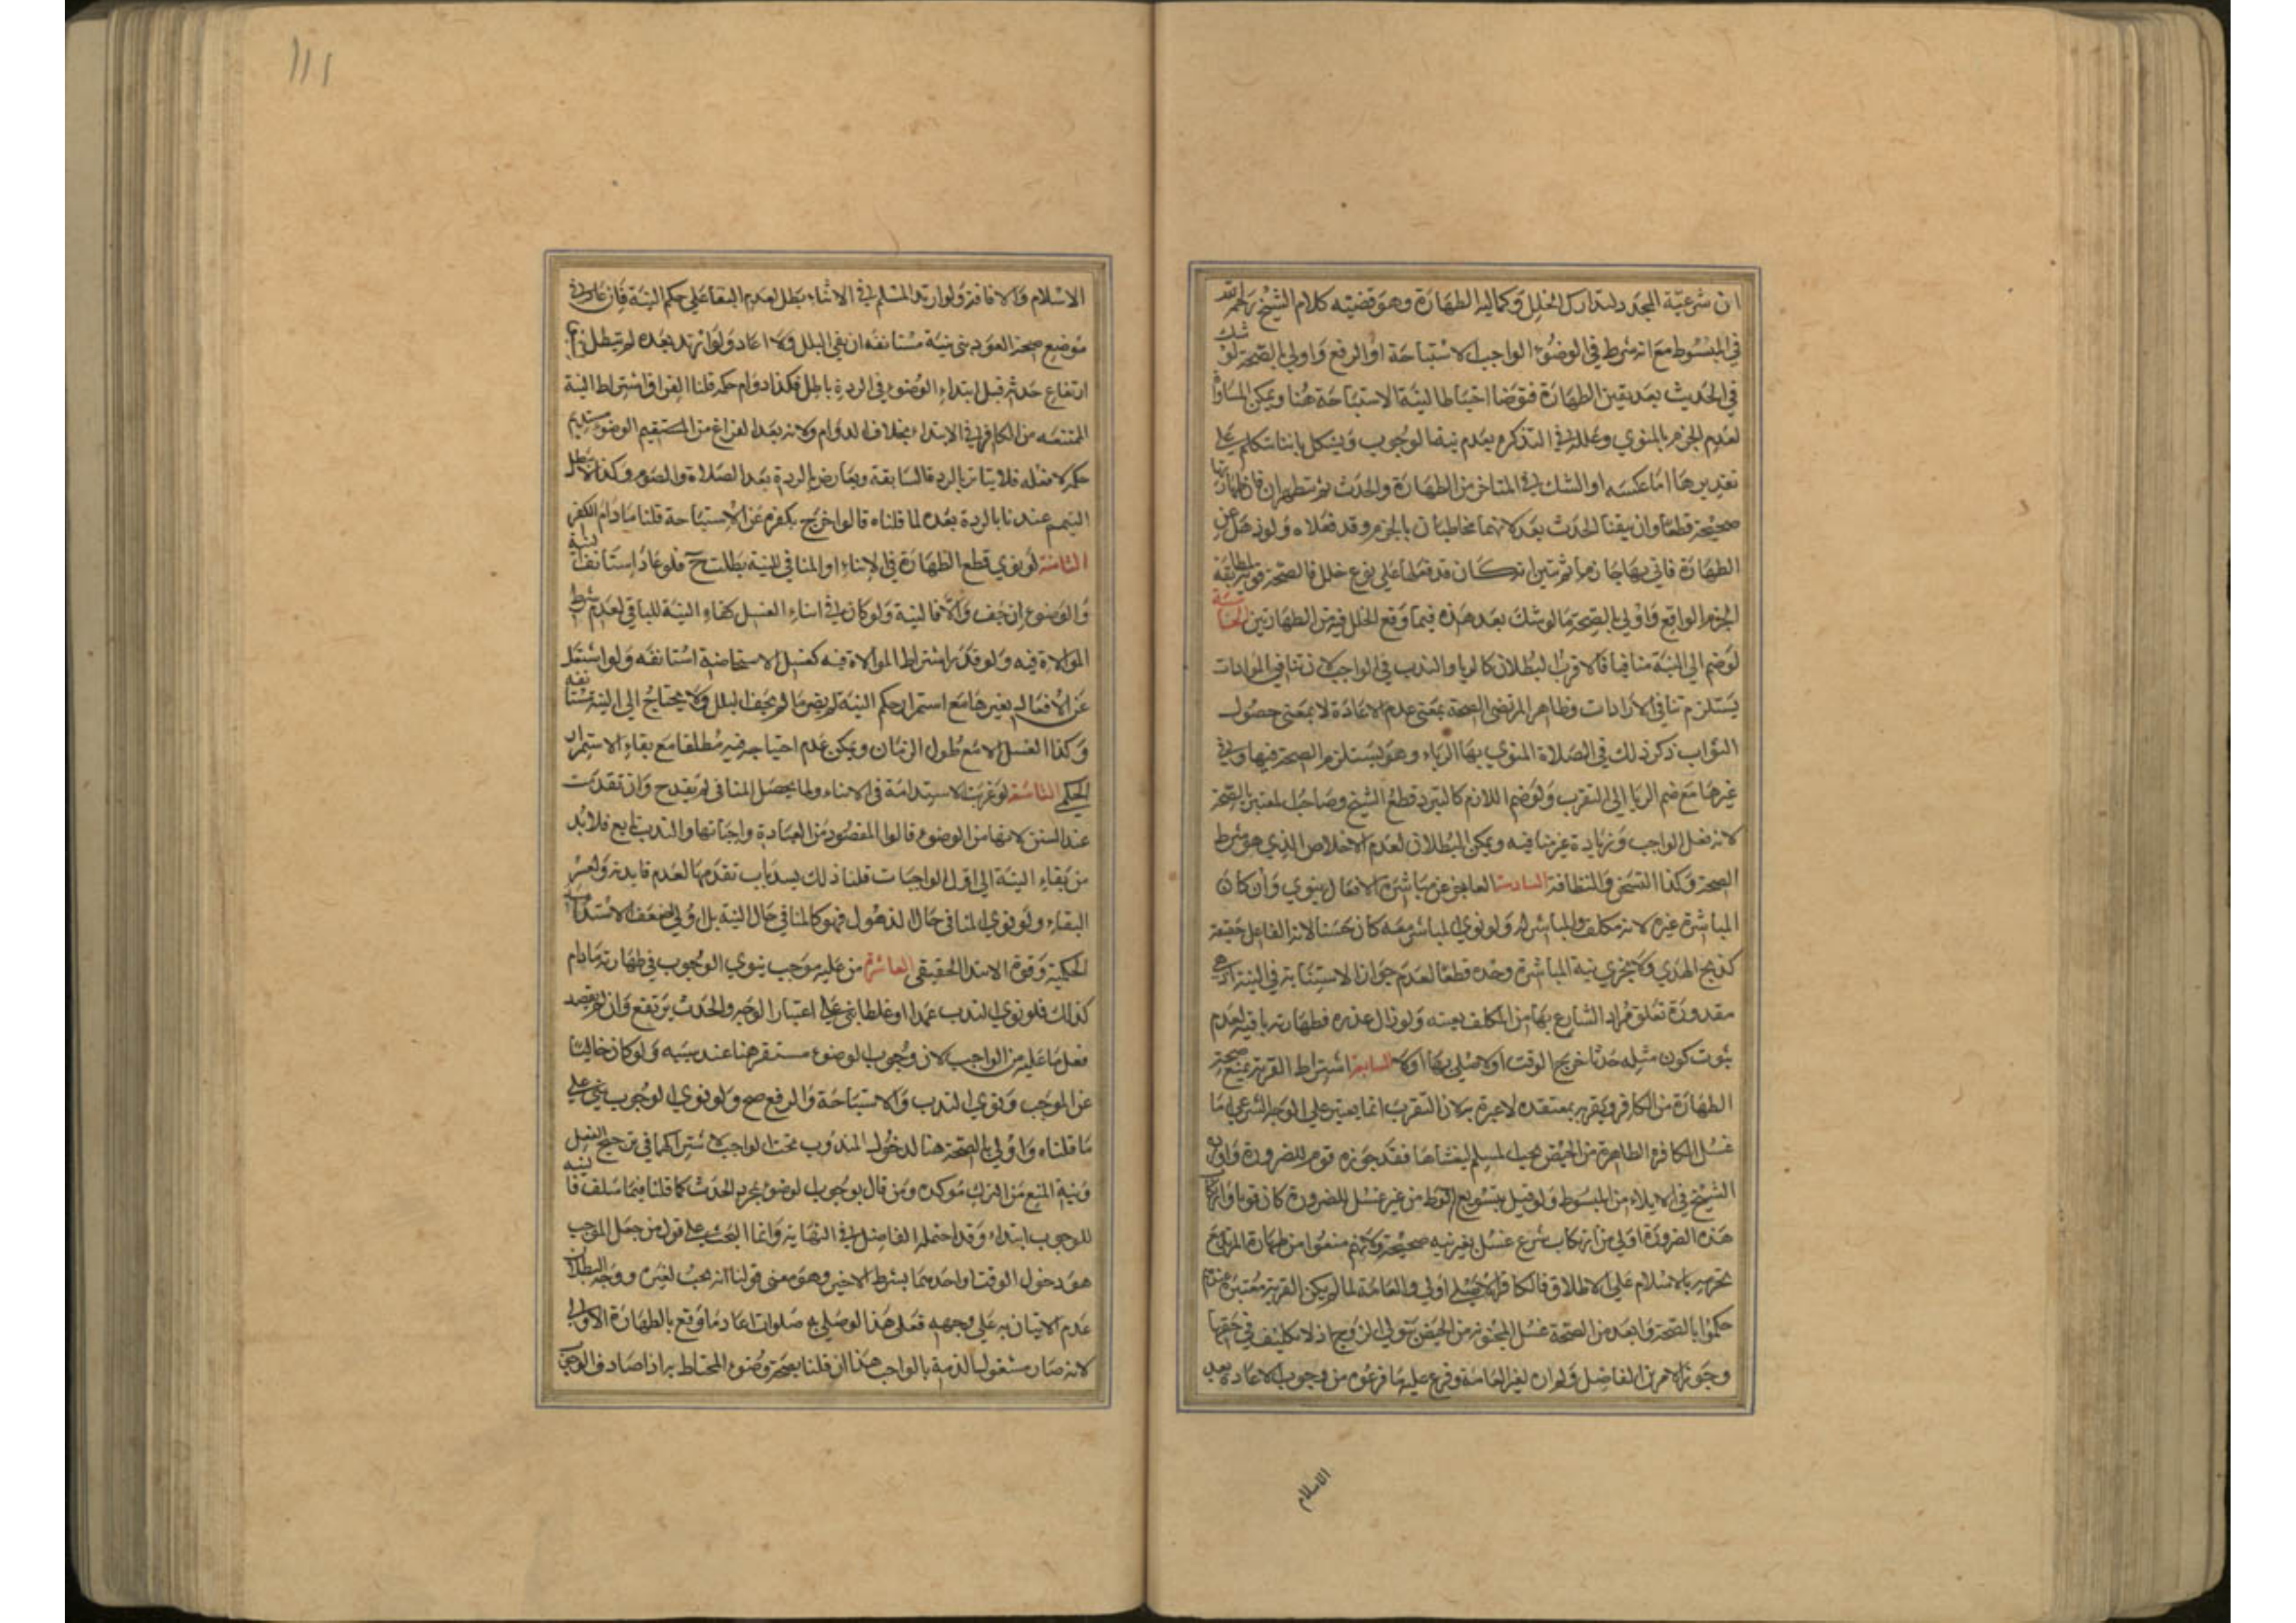 ان شرعية المجدد لتدارك الخلل وكماليه الطهارة وهو قضيته كلام الشيخ رحمه الله
في المبسوط مع انه شرط في الوضوء الواجب الاستباحة او الرفع واولى بالصحة لو شك
في الحدث بعد يقين الطهارة فتوضا احتياطا لنية الاستباحة هنا ويمكن المساواة
لعدم الجزم بالمنوي وعلله في التذكره بعدم نية الوجوب ويشكل باننا نتكلم على
تقديرها اما عكسه او الشك في المتاخر من الطهارة والحدث ثم تطهران فان طهارتهما
صحيحة قطعا وان تيقنا الحدث بعد لانهما مخاطبان بالجزم وقد فعلاه ولو ذهل عن
الطهارة فاتى بها جازما ثم تبين انه كان قد فعلها على نوع خلل فالصحة قوية لمطابقة
الجزم الواقع واولى بالصحة ما لو شك بعد هذه فيما وقع الخلل فيه من الطهارتين الخامسة
لو ضم الى النية منافيا فالاقرب البطلان كالريا والندب في الواجب لان تنافي المرادات
يستلزم تنافي الارادات وظاهر المرتضى الصحة بمعنى عدم الاعادة لا بمعنى حصول
الثواب ذكر ذلك في الصلاة المنوي بها الرياء وهو يستلزم الصحة فيها وفي
غيرها مع ضم الريا الى التقرب ولو ضم اللازم كالتبرد قطع الشيخ وصاحب المعتبر بالصحة
لانه فعل الواجب وزيادة غير منافيه ويمكن البطلان لعدم الاخلاص الذي هو شرط
الصحة وكذا التسخن والنظافة السادسة العاجز عن مباشرة الافعال ينوي وان كان
المباشرة غيره لانه مكلف والمباشر له ولو نوى المباشر معه كان حسنا لانه الفاعل حقيقة
كذبح الهدي ولا يجزي نية المباشرة وحده قطعا لعدم جواز الاستنابة في النية اذ هي
مقدورة تعلق مراد الشارع بها من المكلف بعينه ولو زال عذره فطهارته باقية لعدم
ثبوت كون مثله حدثا خرج الوقت اولا صلى بها اولا السابعة اشتراط القربة يمنع صحة
الطهارة من الكافر وتقربه بمعتقده لا عبرة به لان التقرب انما يعتبر على الوجه الشرعي اما
غسل الكافرة الطاهرة من الحيض تحت المسلم ليغشاها فقد جوزه قوم للضرورة واو
الشيخ في الايلاء من المبسوط ولو قيل بتسويغ الوطء من غير غسل للضرورة كان قويا وارتكاب
هذه الضرورة اولى من ارتكاب شرع غسل بغير نية صحيحة ولانهم منعوا من طهارة المرتد مع
تحرمه بالاسلام على الاطلاق فالكافر الاصلي اولى والعامة لما لم يكن القربة معتبرة عندهم
حكموا بالصحة وابعد من الصحة غسل المجنونة من الحيض بتولي الزوج اذ لا تكليف في حقها
وجوز الامرين الفاضل ولم اره لغير العامة وفرع عليه ما فرعوه من وجوب الاعادة بعد
الاسلام
١١١
الاسلام والافاقة ولو ارتد المسلم في الاثناء بطل لعدم البقاء على حكم النية فان عاد في
موضع صحة العود بنى بنية مستانفه ان بقي البلل والا اعاد ولو ارتد بعده لم تبطل
ارتفاع حدثه قبل ابتداء الوضوء في الردة باطل فكذا دوام حكمه قلنا الفرق اشتراط النية
الممتنعه من الكافر في الابتداء بخلاف الدوام ولانه بعد الفراغ من المستقيم الوضوء يستديم
حكمه لا فعله فلا يتاثر بالردة السابقة ويعارض بالردة بعد الصلاة والصوم وكذا لا تبطل
التيمم عندنا بالردة بعده لما قلناه قالوا خرج بكفره عن الاستباحة قلنا ما دام الكفر
الثامنة لو نوى قطع الطهارة في الاثناء او المنافي للنية بطلت ح فلو عاد استانف نية
والوضوء ان جف والا فالنية ولو كان في اثناء الغسل كفاه النية للباقي لعدم شرط
الموالاة فيه ولو قدر اشتراط الموالاة فيه كغسل الاستحاضة استانفه ولو اشتغل
عن الافعال بغيرها مع استمرار حكم النية لم يضر ما لم يجف البلل ولا يحتاج الى النية مستانفه
وكذا الغسل الا مع طول الزمان ويمكن عدم احتياجه فيه مطلقا مع بقاء الاستمرار
الحكمي التاسعة لو عزبت الاستدامة في الاثناء ولما يحصل المنافي لم يقدح وان تقدمت
عند السنن لانها من الوضوء قالوا المقصود من العبادة واجباتها والندب تابع فلا بد
من بقاء النية الى اول الواجبات قلنا ذلك يسد باب تقدمها لعدم فايدته ولعسر
البقاء ولو نوى المنافي حال الذهول فهو كالمنافي حال النية بل اولى لضعف الاستدامة
الحكمية وقوة الابتداء الحقيقي العاشرة من عليه موجب ينوي الوجوب في طهارته مادام
كذلك فلو نوى الندب عمدا او غلطا بني على اعتبار الوجه والحدث يرتفع وان لم يقصد
فعل ما عليه من الواجب لان وجوب الوضوء مستقر هنا عند سببه ولو كان خاليا
عن الموجب ونوى الندب والاستباحة والرفع صح ولو نوى الوجوب بني على
ما قلناه واولى بالصحة هنا لدخول المندوب تحت الواجب لاشتراكهما في ترجيح الفعل
ونية المنع من الترك موكده ومن قال بوجوب الوضوء بمجرد الحدث كما قلنا فيما سلف فا نيته
للوجوب ابتداء وقد احتمله الفاضل في النهاية وانما البحث على قول من جعل الموجب
هو دخول الوقت او احدهما بشرط الاخير وهو معنى قولنا انه يجب لغيره ووجه البطلان
عدم الاتيان به على وجهه فعلى هذا لو صلى به صلوات اعاد ما وقع بالطهارة الاولى
لانه صار مشغول الذمة بالواجب هذا ان قلنا بصحة وضوء المحتاط به اذا صادف الوجوب